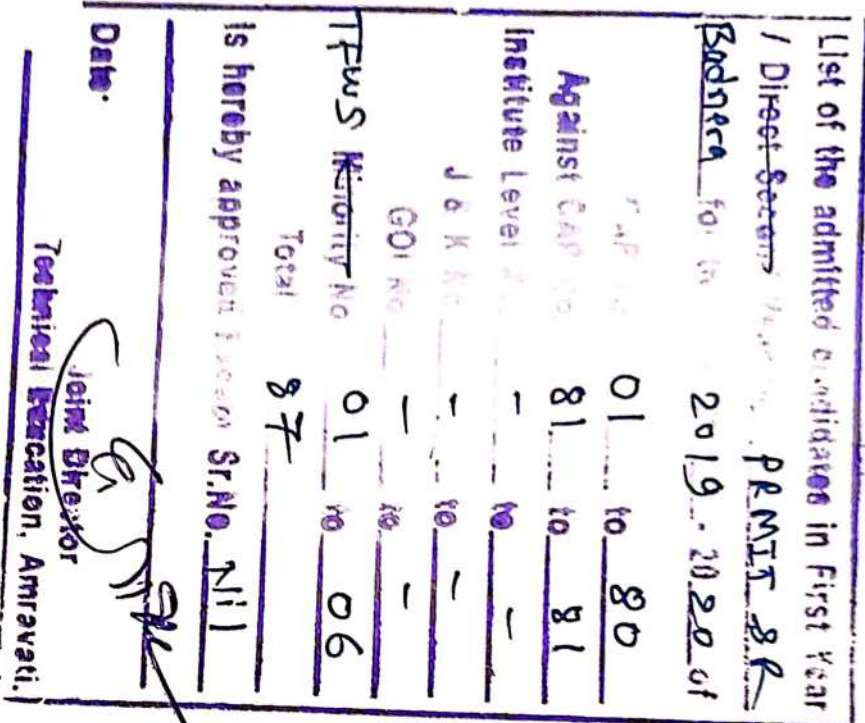 List of the admitted candidates in First Year
/ Direct Second Year PRMIT &R
Badnera for the 2019-2020 of
CAP No 01 to 80
Against CAP No 81 to 81
Institute Level No - to -
J & K No - to -
GOI No - to -
TFWS Minority No 01 to 06
Total 87
Is hereby approved Except Sr.No. Nil
Date:
Joint Director
Technical Education, Amravati.